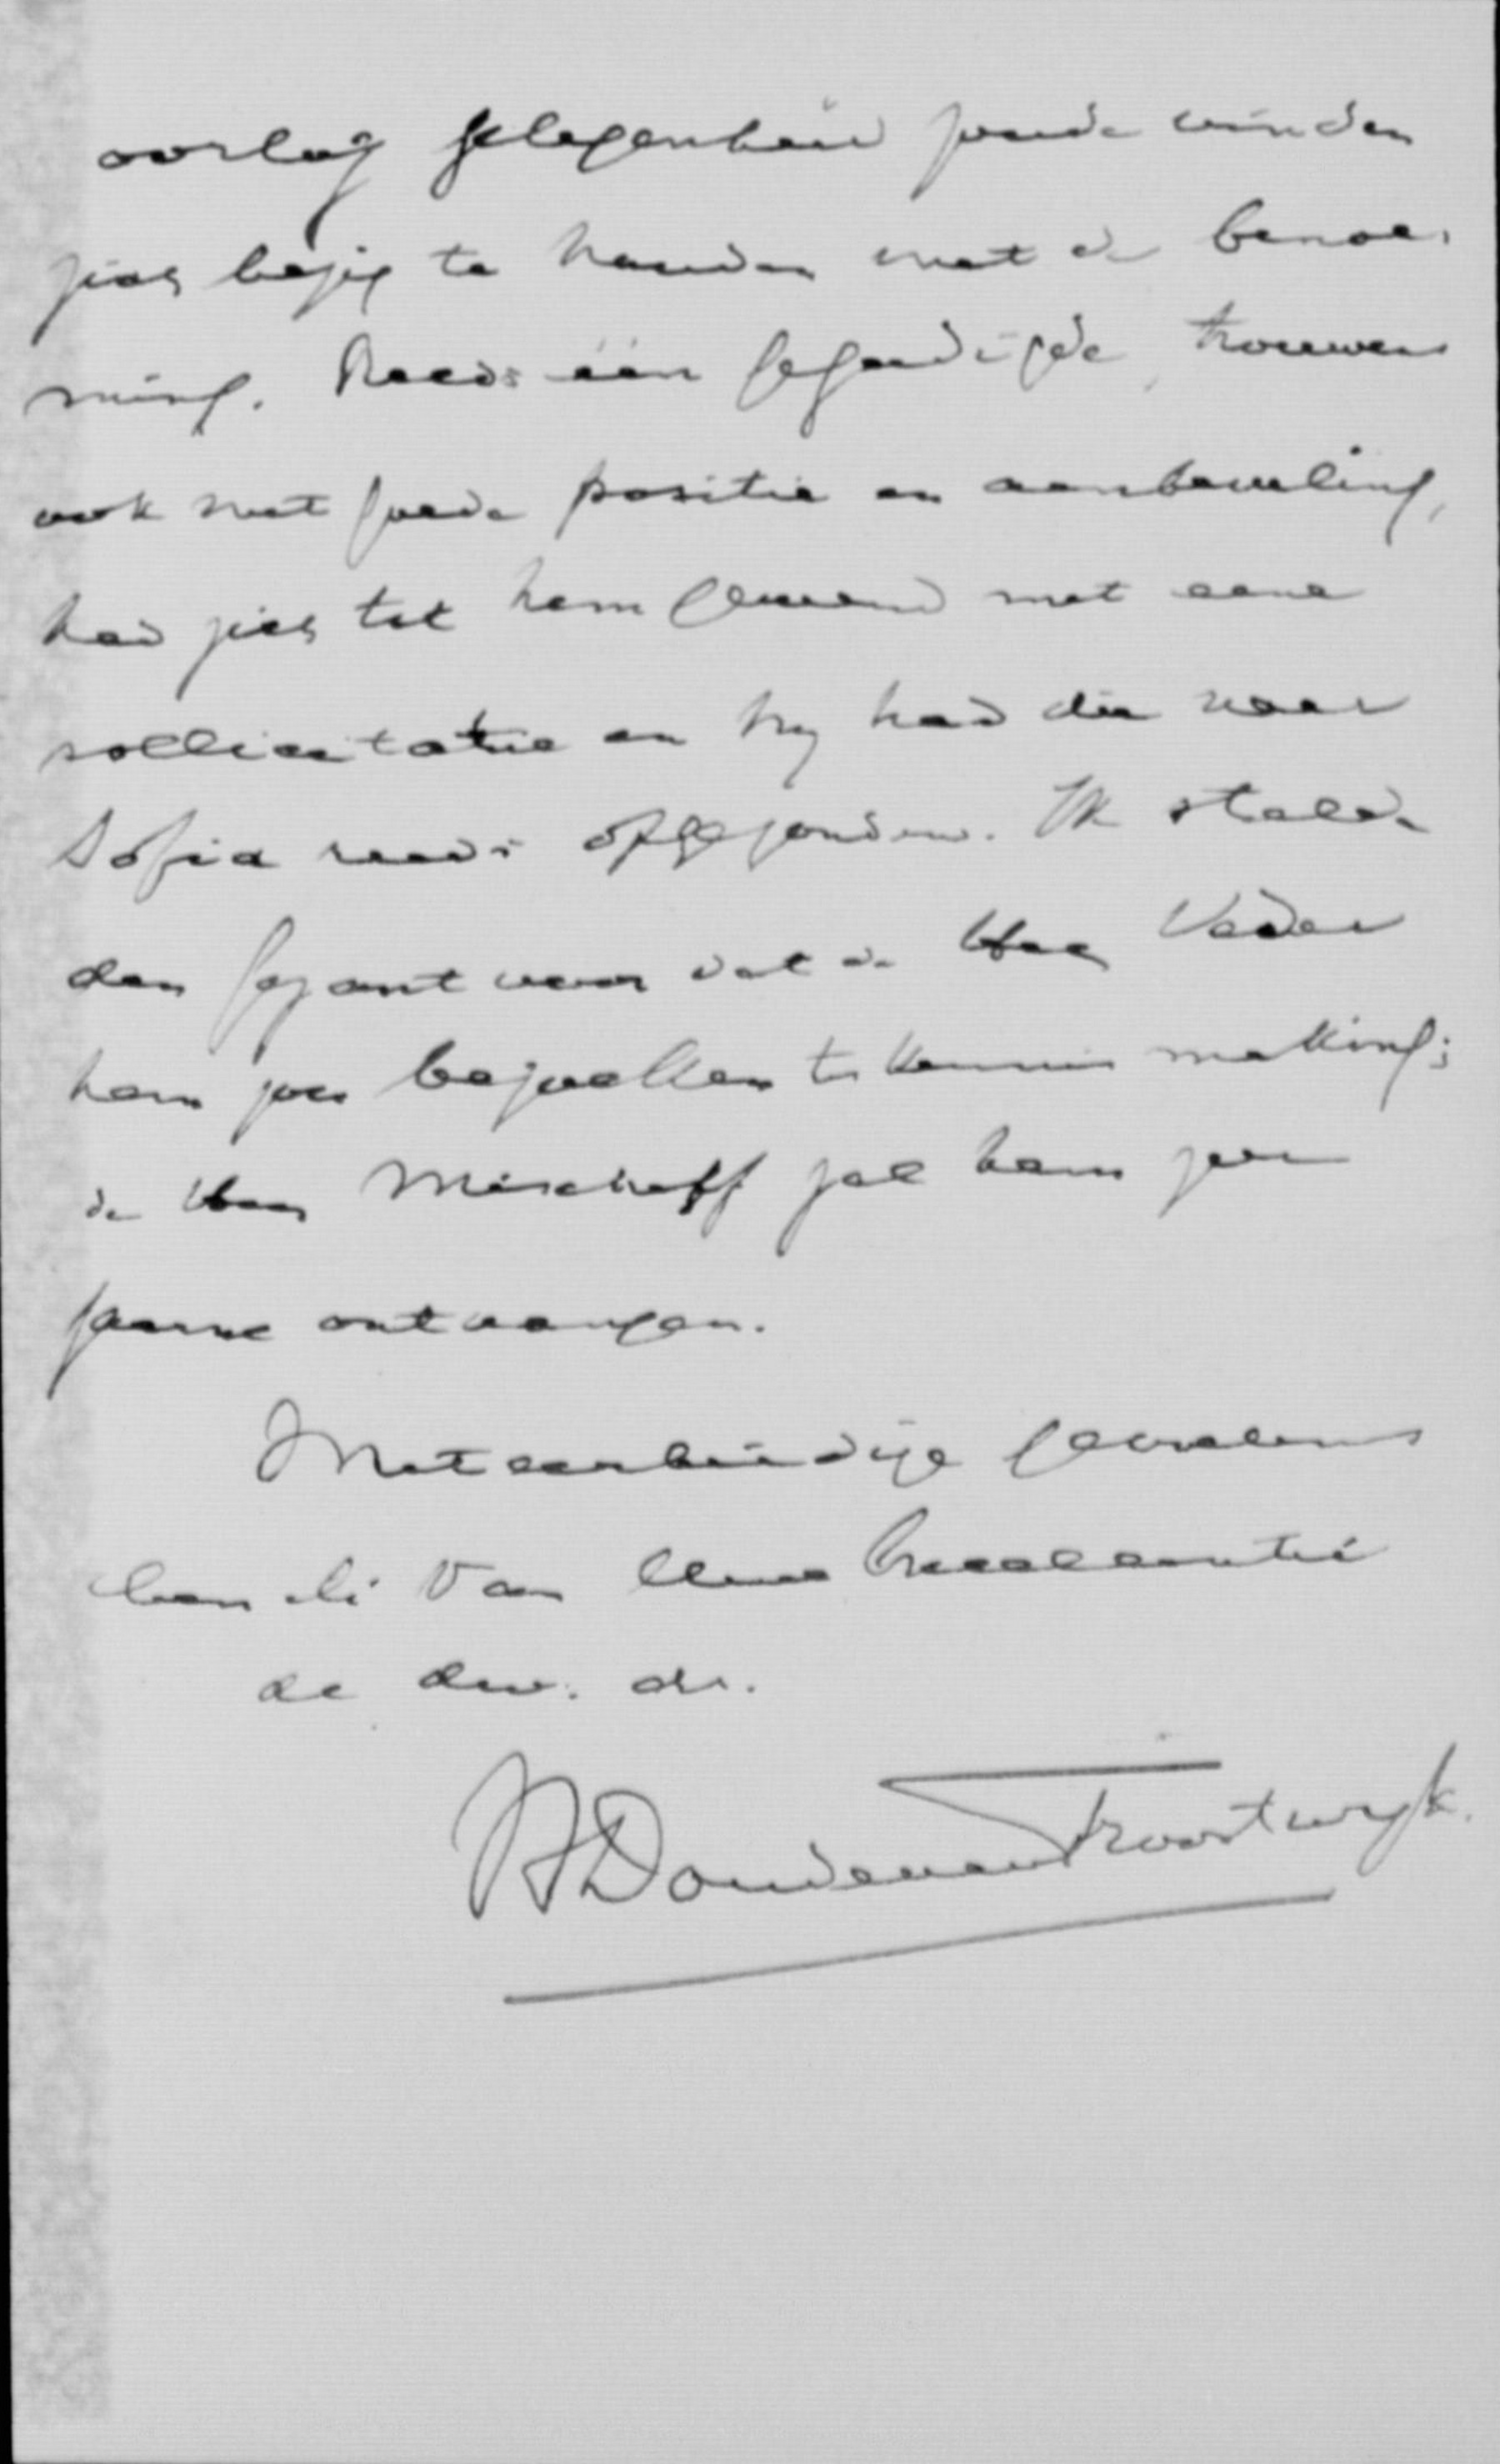 oorlog gelegenheid zoude vinden
zich bezig te houden met de benoe-
ming. Reeds één gegadigde, trouwens
ook met goede positie en aanbeveling,
had zich tot hem gewend met eene
sollicitatie en hij had die naar
Sofia reeds opgezonden. Ik stelde
den gezant voor dat de Heer Vader
hem zou bezoeken ter kennismaking;
de Heer Mischeff zal hem zeer
gaarne ontvangen.
Met eerbiedige gevoelens
heb ik van Uwe Excellentie
de dw. dr.
Doude van Troostwijk.